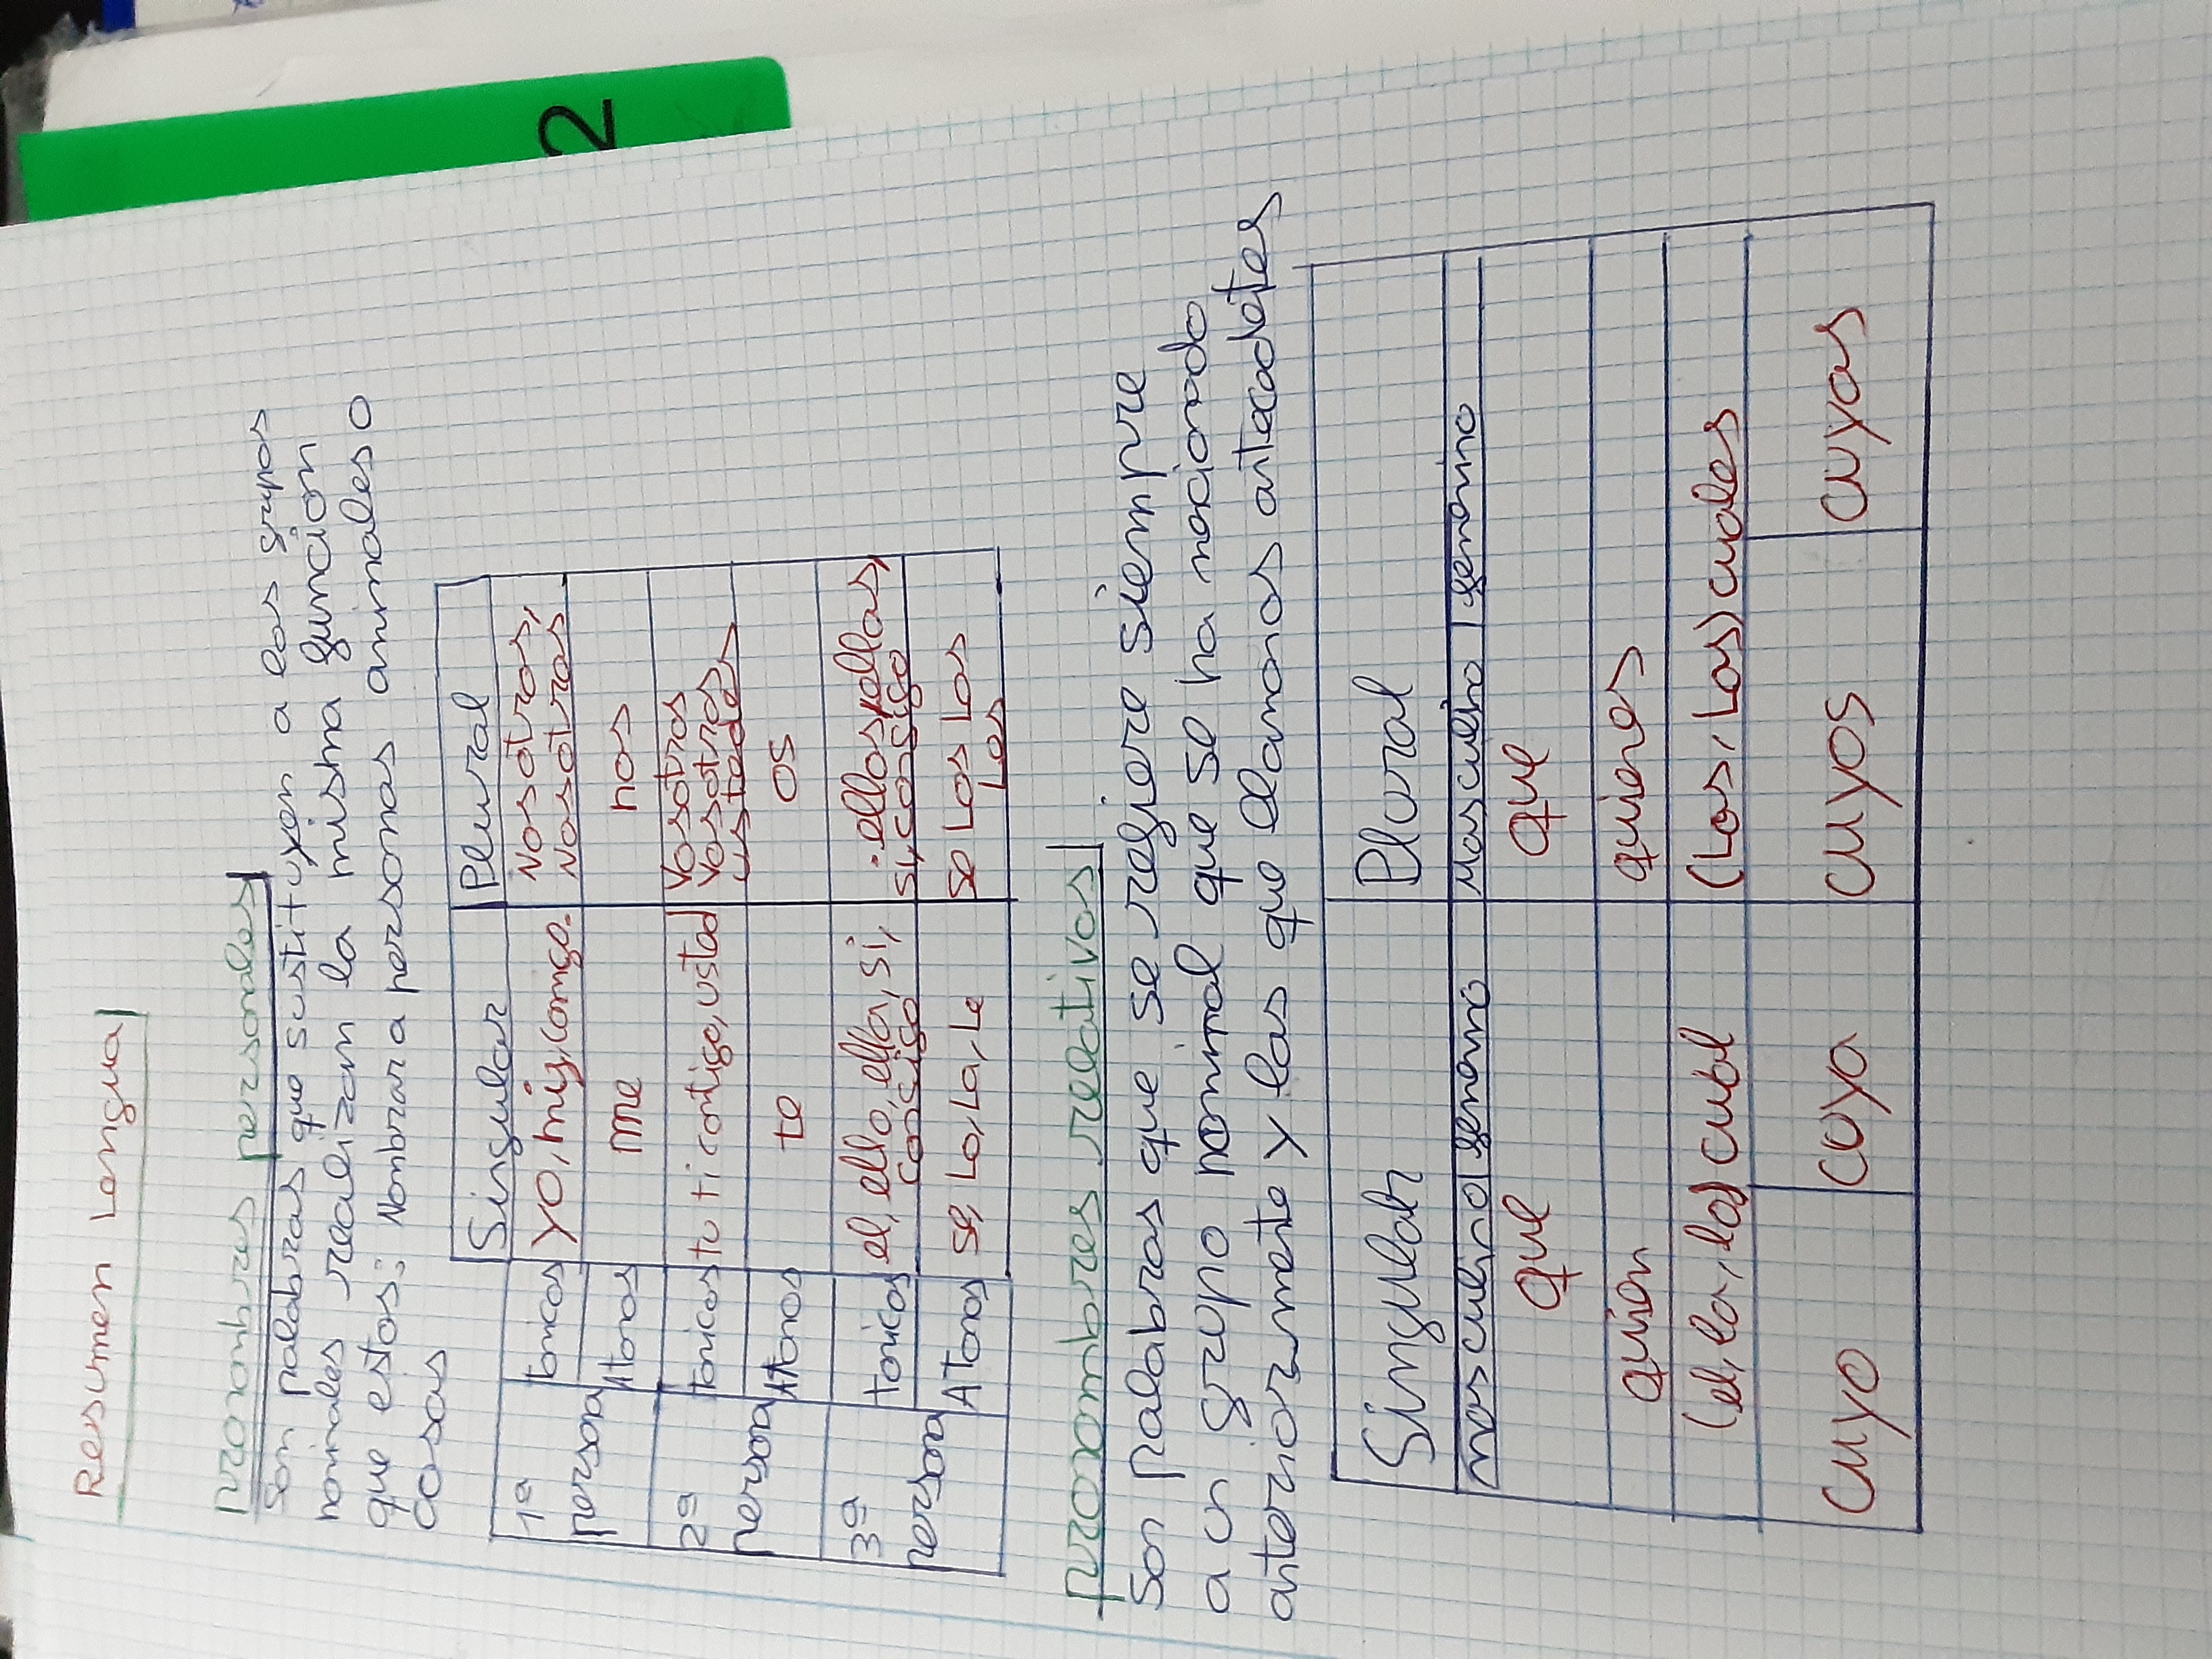 Resumen Lengua
pronombres personales
son palabras que sustituyen a los grupos
nominales realizan la misma funcion
que estos: Nombrar a personas animales o
cosas
Singular Plural
1ª persona tonicos yo, mi, comigo. Nosotros, Nosotras.
Atonos me nos
2ª persona tonicos tu ti contigo, usted Vosotros Vosotras ustedes
Atonos te os
3ª persona tonicos el, ello, ella, si, consigo ellos, ellas, si, consigo
Atonos se, Lo, La, Le se Los Las Les
pronombres relativos
Son palabras que se refiere siempre
a un grupo nominal que se ha mecionado
anteriormente y las que llamamos antecedetes
Singular Plural
masculino femenino Masculino femenino
que que
quien quienes
(el, la, lo) cual (Los, Las) cuales
cuyo cuya cuyos cuyas
2